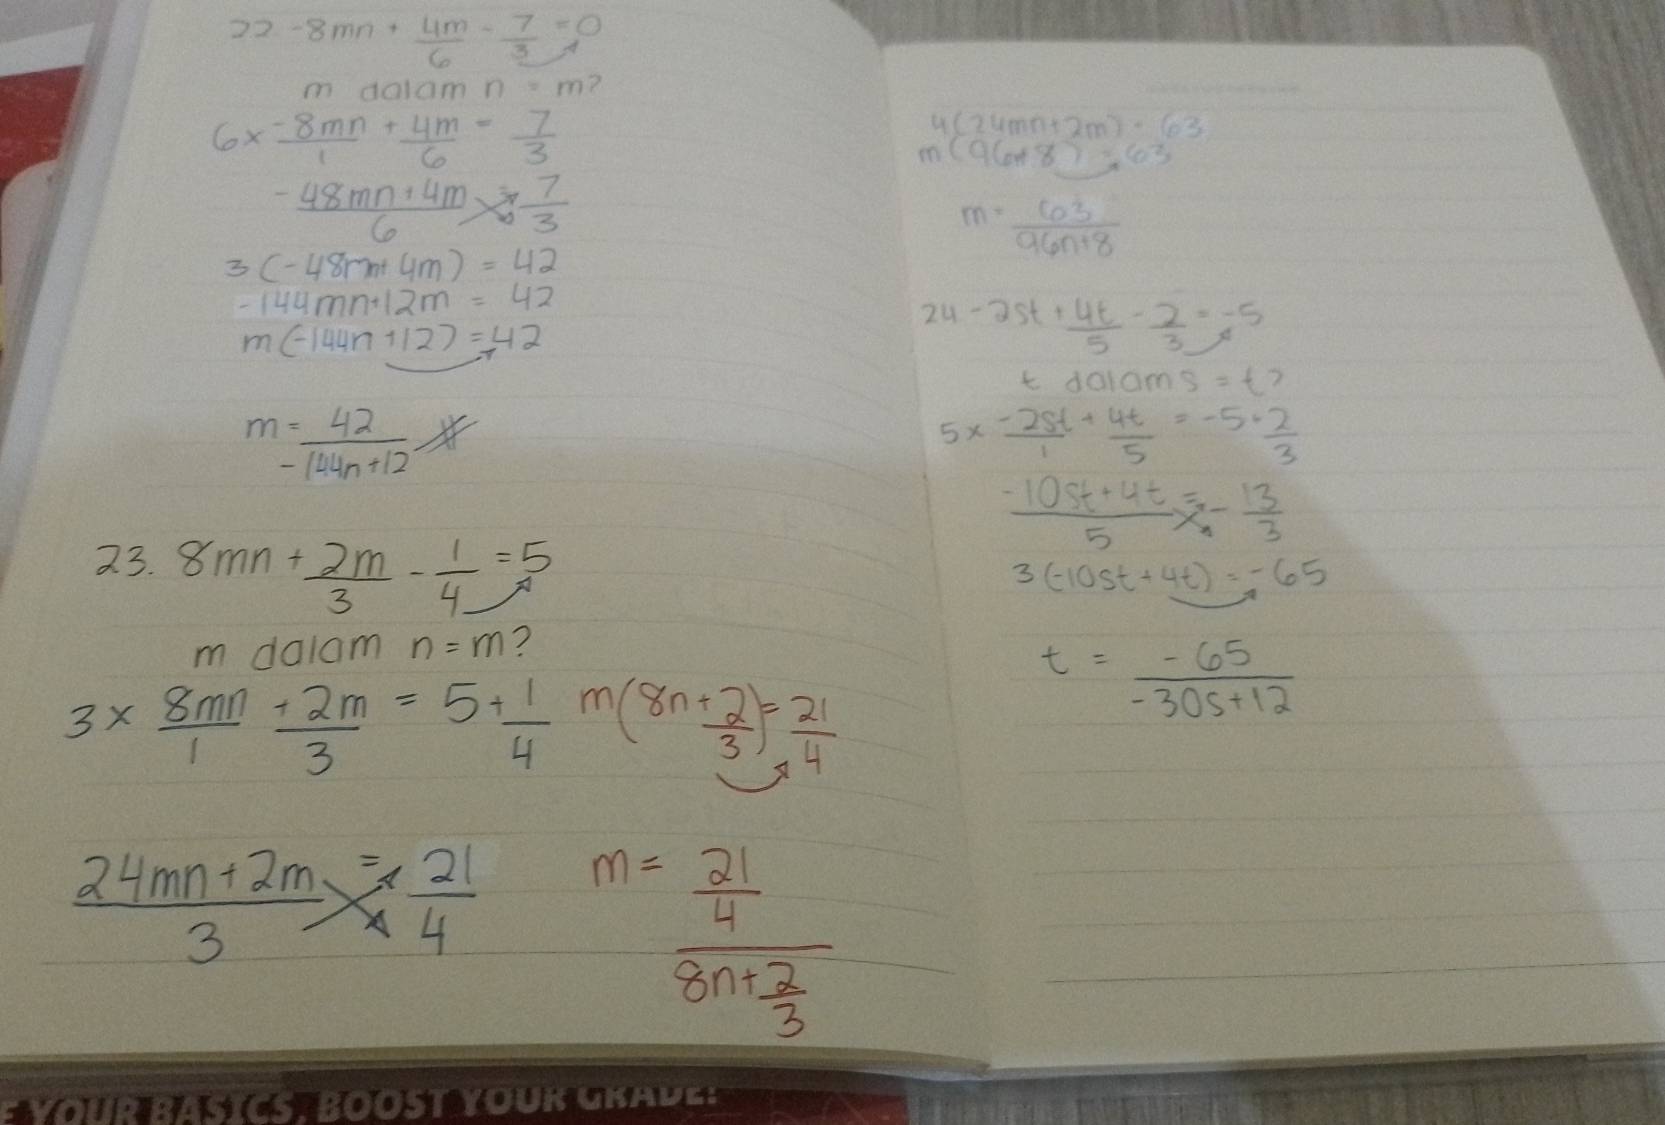 22 -8mn + 4m/6 - 7/3 = 0
m dalam n = m?
6 x -8mn/1 + 4m/6 = 7/3
-48mn+4m/6 = 7/3
3(-48mn+4m) = 42
-144mn+12m = 42
m(-144n+12) = 42
m = 42/-144n+12
23. 8mn + 2m/3 - 1/4 = 5
m dalam n = m?
3 x 8mn/1 + 2m/3 = 5 + 1/4
24mn+2m/3 = 21/4
m(8n+2/3) = 21/4
m = 21/4 / 8n+2/3
4(24mn+2m) = 63
m(96n+8) = 63
m = 63/96n+8
24 -2st + 4t/5 - 2/3 = -5
t dalam s = t?
5 x -2st/1 + 4t/5 = -5 + 2/3
-10st+4t/5 = -13/3
3(-10st+4t) = -65
t = -65/-30s+12
YOUR BASICS, BOOST YOUR GRADE!